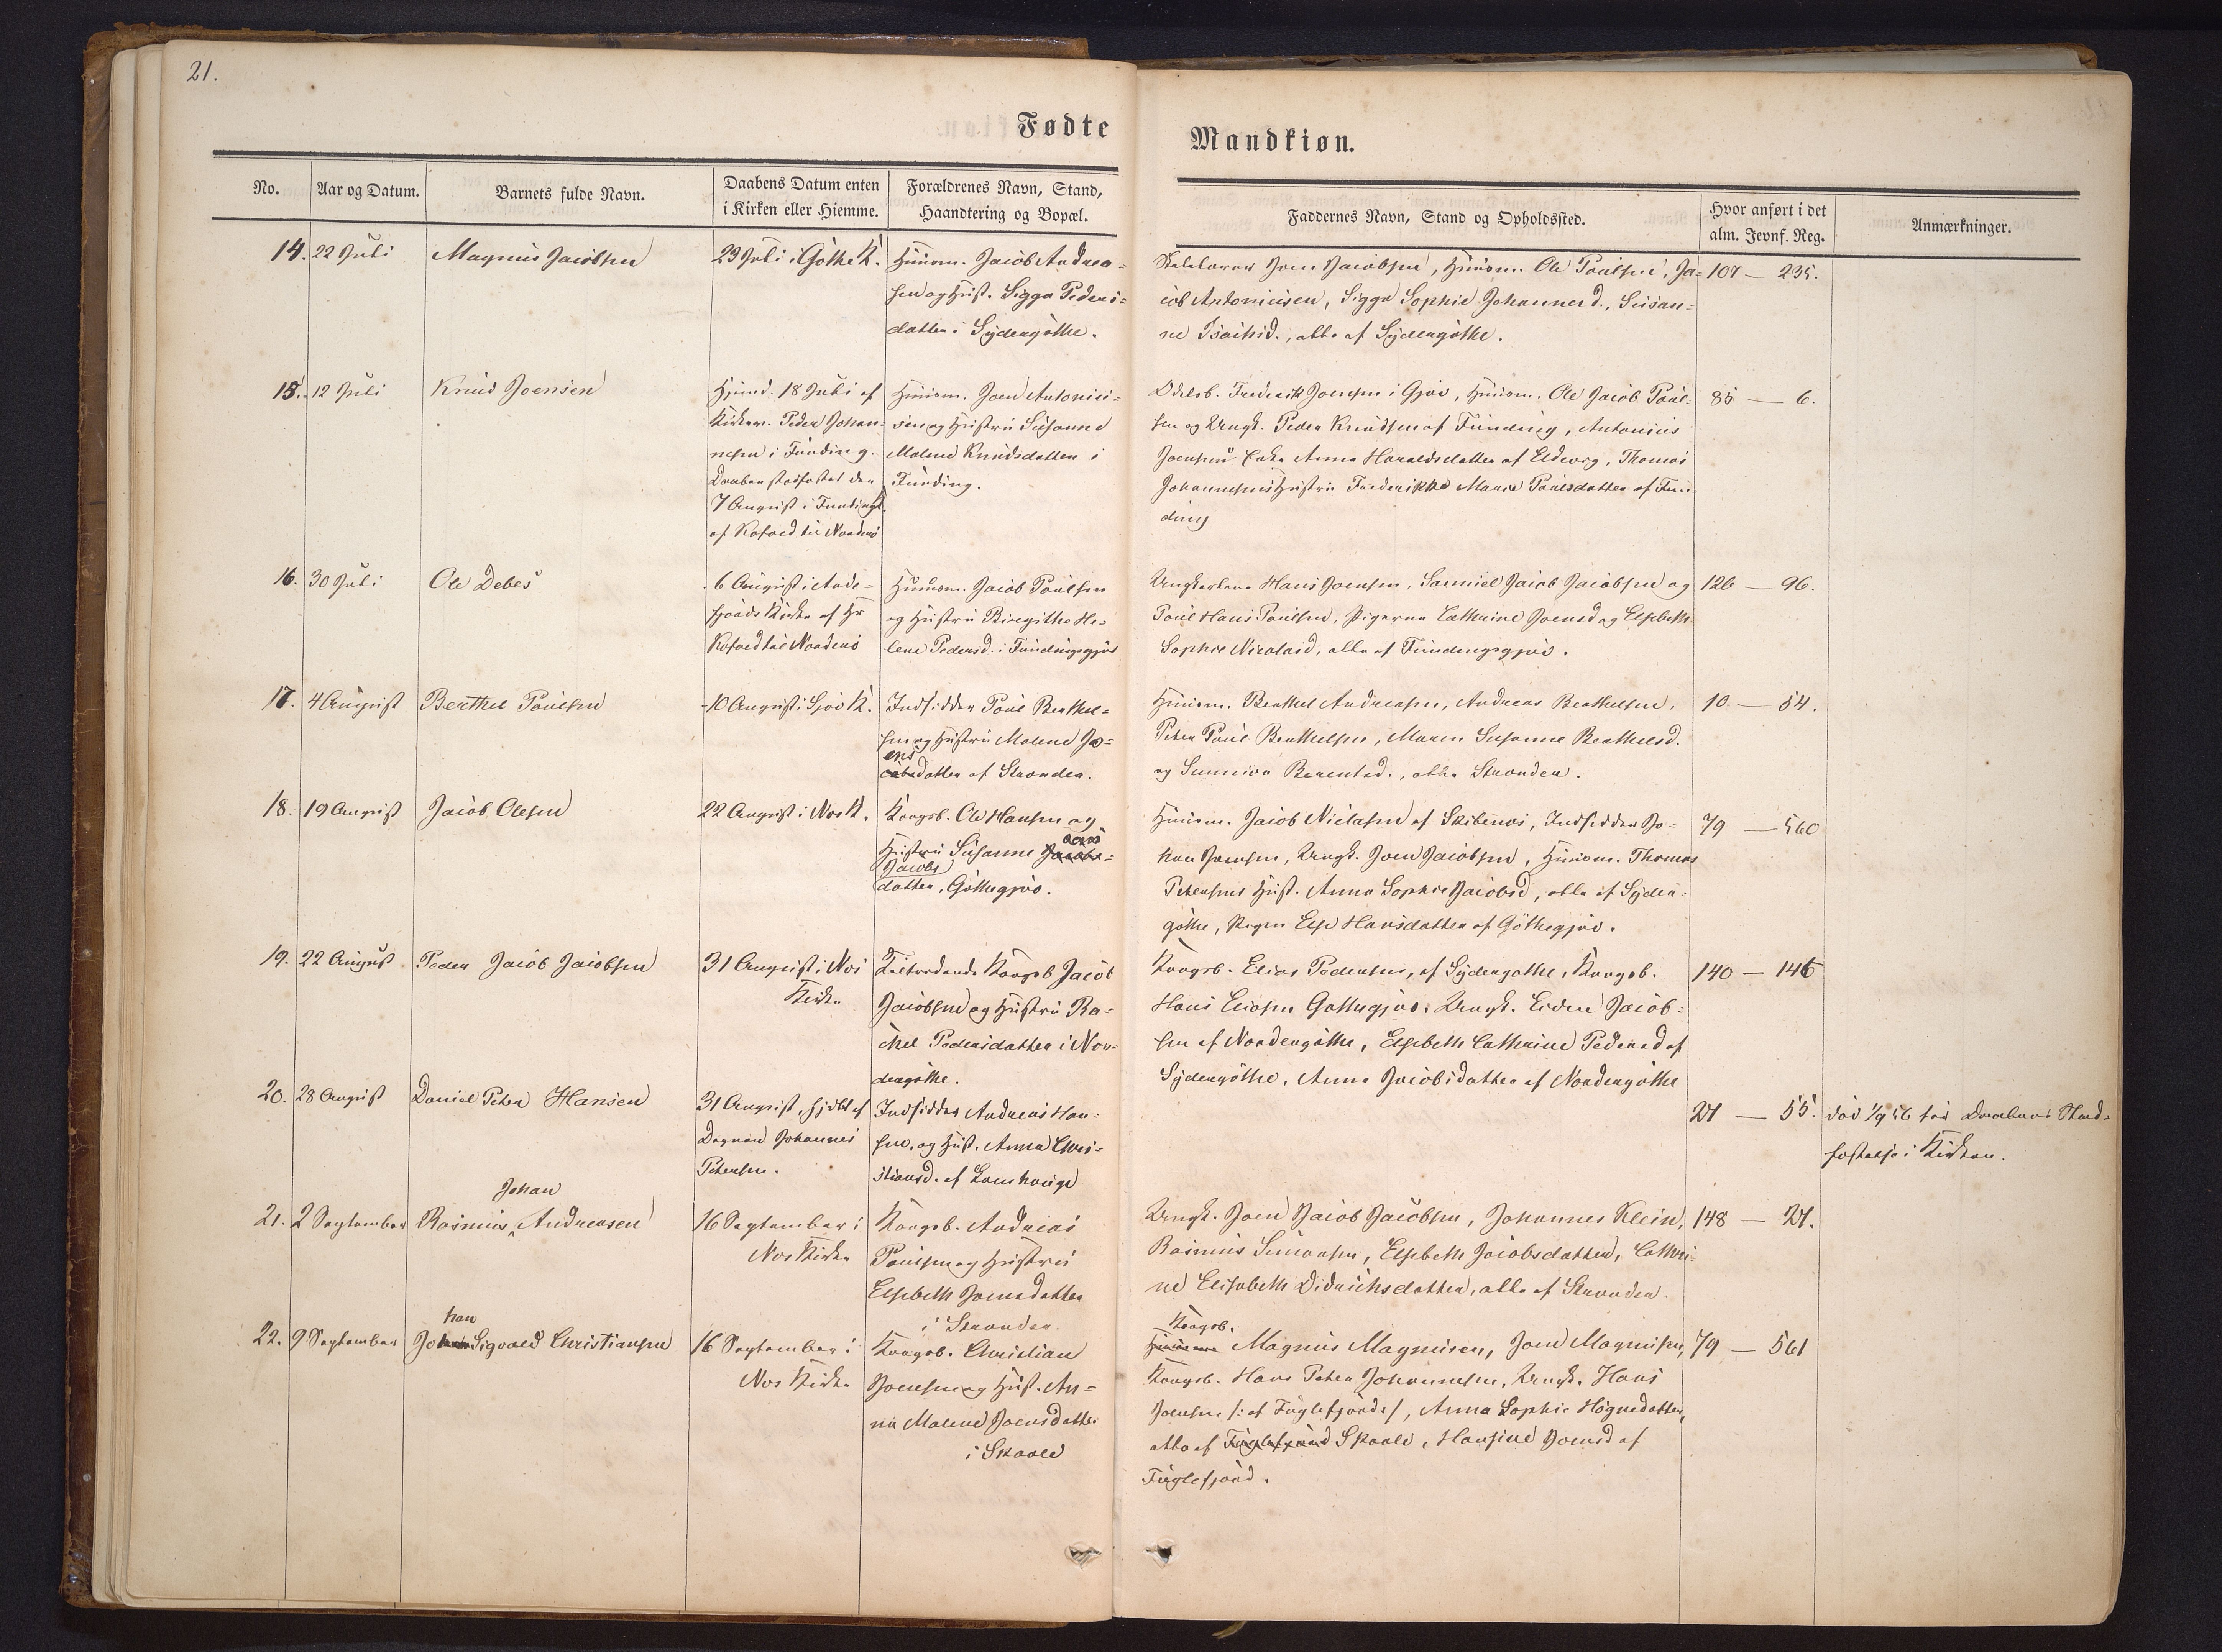 21.
Fødte
Mandkiøn.
No.
Aar og Datum.
Barnets fulde Navn.
Daabens Datum enten
i Kirken eller Hiemme.
Forældrenes Navn, Stand,
Haandtering og Bopæl.
Faddernes Navn, Stand og Opholdssted.
Hvor anført i det
alm. Jevnf. Reg.
Anmærkninger.
14.
22 Juli
Magnus Jacobsen
29 Juli i Göthe K.
Huusm. Jacob Andrea=
sen og Hust. Sigga Peders=
datter i Sydergöthe.
Joen Jacobsen, Huusm. Ole Poulsen, Ja=
cob Antoniusen, Sigga Sophie Johannesd., Susan=
ne Isachsd., alle af Sydergöthe.
107 — 235.
15.
12 Juli
Knud Joensen
Hjemd. 18 Juli af
Peder Johan=
nesen i Funding.
Daaben stadfæstet den
7 August i Funding K.
af Kofoed til Norderö
Huusm. Joen Antoniu=
sen og Hustru Susanne
Malene Knudsdatter i
Funding.
Odelsb. Frederik Joensen i Gjov, Huusm. Ole Jacob Poul=
sen og Ungk. Peder Knudsen af Funding, Antonius
Joensens Enke Anna Haraldsdatter af Eldevig, Thomas
Johannesens Hustru Frederikke Marie Poulsdatter af Fun=
ding
85 — 6.
16.
30 Juli
Ole Debes
6 August i Ande=
fjords Kirke af Hr
Kofoed til Norderö
Huusm. Jacob Poulsen
og Hustru Birgithe He=
lene Pedersd. i Fundingsgjov
Ungkarlene Hans Joensen, Samuel Jacob Jacobsen og
Poul Hans Poulsen, Pigerne Cathrine Joensd og Elsebeth
Sophie Nicolaid, alle af Fundingsgjov.
126 — 96.
17.
4 August
Berthel Poulsen
10 August i Gjov K.
Indsidder Poul Berthel=
sen og Hustru Malene Jo=
ens
datter af Strender.
Huusm. Berthel Andreasen, Andreas Berthelsen,
Peter Poul Berthelsen, Maren Susanne Berthelsd.
og Sunniva Berentsd., alle Strender.
10 — 54.
18.
19 August
Jacob Olesen
22 August i Nes K.
Kongsb. Ole Hansen og
Hustru Susanne
Jacobs
datter, Göthegjov.
Huusm. Jacob Niclasen af Skibenes, Indsidder Jo=
han Joensen, Ungk. Joen Jacobsen, Huusm. Thomas
Petersens Hust. Anna Sophie Jacobsd, alle af Syder=
göthe, Pigen Else Hansdatter af Göthegjov.
79 — 560
19.
22 August
Peder Jacob Jacobsen
31 August i Nes
Kirke
Fratrædende Kongsb Jacob
Jacobsen og Hustru Ra=
chel Pedersdatter i Nor=
dergöthe.
Kongsb. Elias Pedersen, af Sydergøthe, Kongsb.
Hans Eliasen Gøthegjov, Ungk. Jacob=
sen af Nordergöthe, Elsebeth Cathrine Pedersd af
Sydergöthe, Anna Jacobsdatter af Nordergöthe
140 — 146
20.
28 August
Daniel Peter Hansen
31 August, hjdbt af
Degnen Johannes
Petersen.
Indsidder Andreas Han=
sen og Hust. Anna Chri=
stiansd. af Lamhauge
21 — 55.
død 1/9 56 før Daabens Stad=
fæstelse i Kirken.
Johan
21.
2 September
Rasmus Andreasen
16 September i
Nes Kirke
Kongsb. Andreas
Poulsen og Hustru
Elsebeth Joensdatter
i Strender.
Ungk. Joen Jacob Jacobsen, Johannes Klein,
Rasmus Simonsen, Elsebeth Jacobsdatter, Cathri=
ne Elisabeth Didrichsdatter, alle af Strender.
148 — 21.
han
22.
9 September
Jo Sigvald Christiansen
16 September i
Nes Kirke
Kongsb. Christian
Joensen og Hust. An=
na Malene Joensdatter
i Skaale
Kongsb.
Magnus Magnusen, Joen Magnusen,
Kongsb. Hans Peter Johannesen, Ungk. Hans
Joensen /: af Fuglefjord :/, Anna Sophie Högnedatter,
alle af Fuglefjord Skaale, Hansine Joensd af
Fuglefjord.
79 — 561